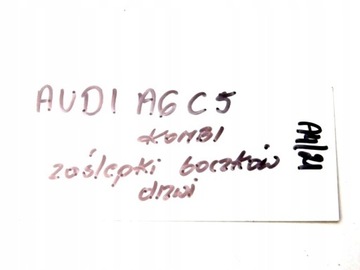 AUDI A6 C5
KOMBI
zaślepki boczków
drzwi
A4/21